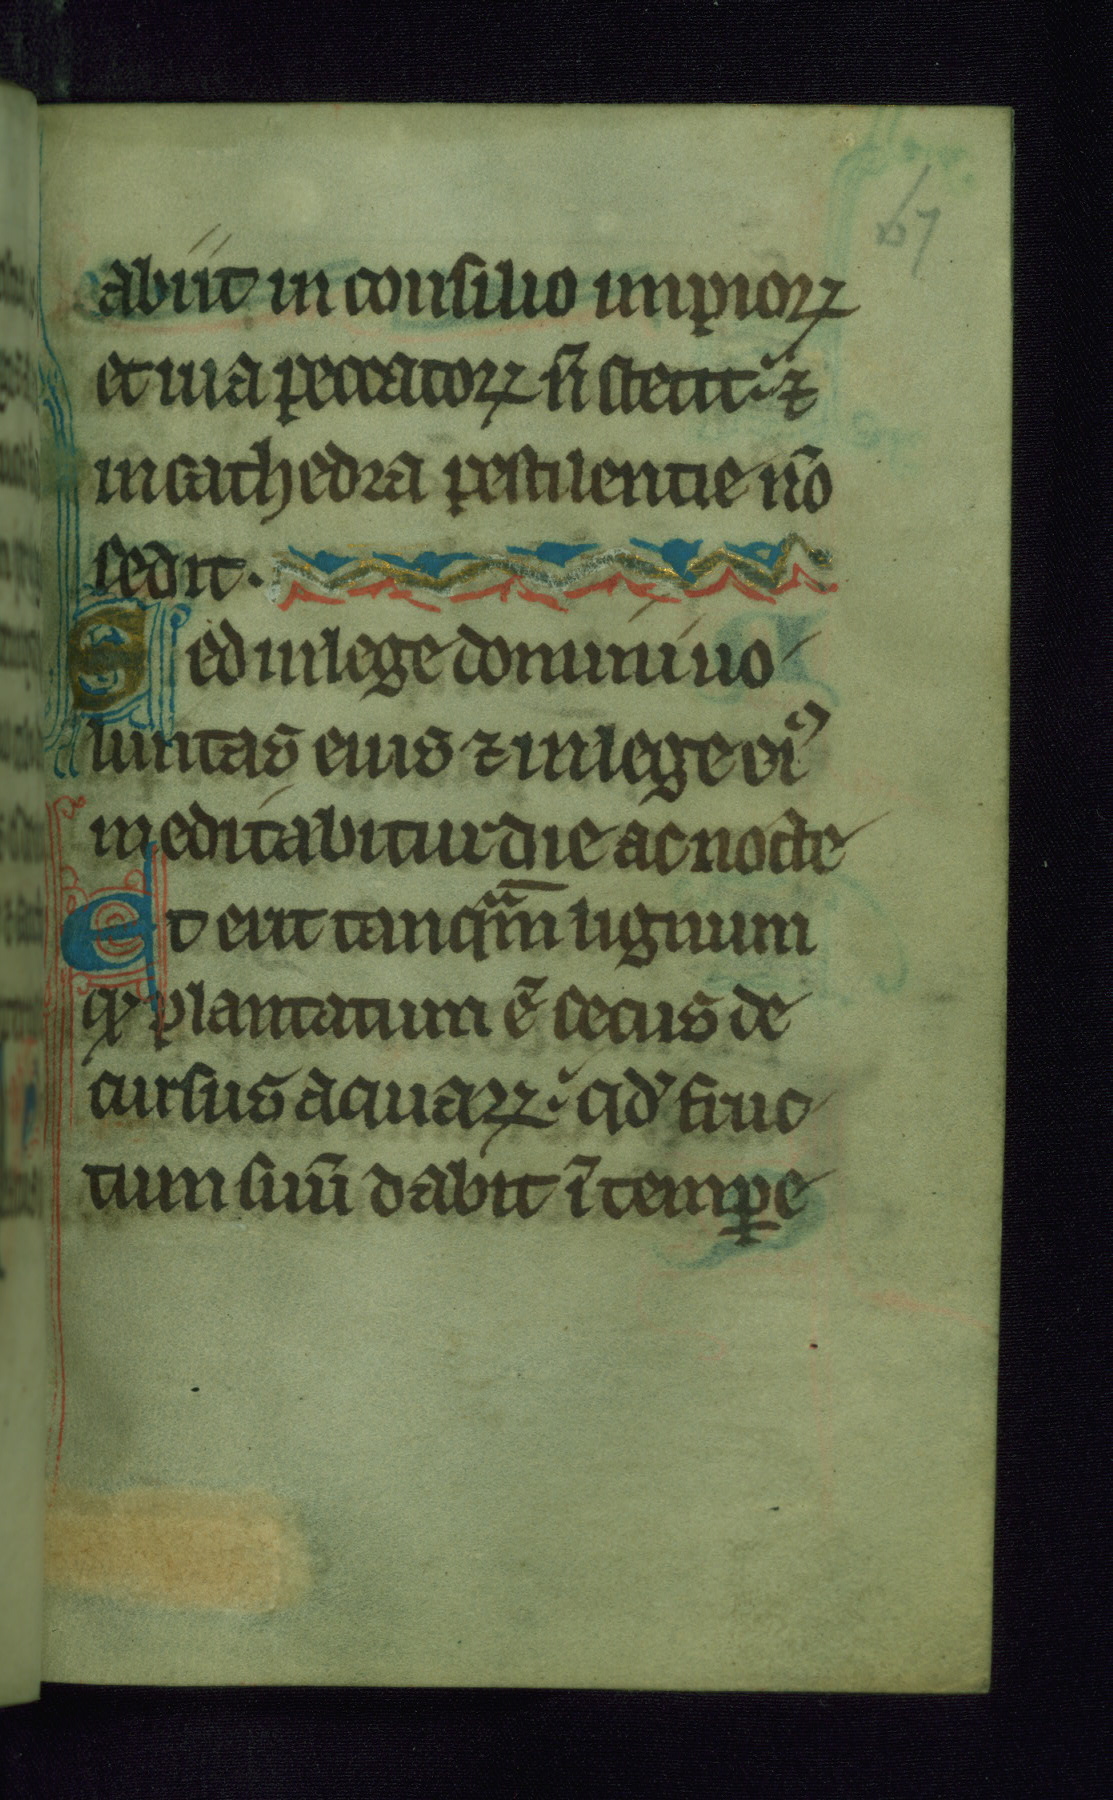 67
abiit in consilio impioꝝ
et uia peccatoꝝ n̄ stetit ⁊
in cathedra pestilentie nō
sedit.
Sed in lege domini uo
luntas eius ⁊ in lege eiꝰ
meditabitur die ac nocte
Et erit tanqᵃ̄m lignum
qꝫ plantatum ē secus de
cursus aquaꝝ qd̓ fruc
tum suū dabit ī temꝑe